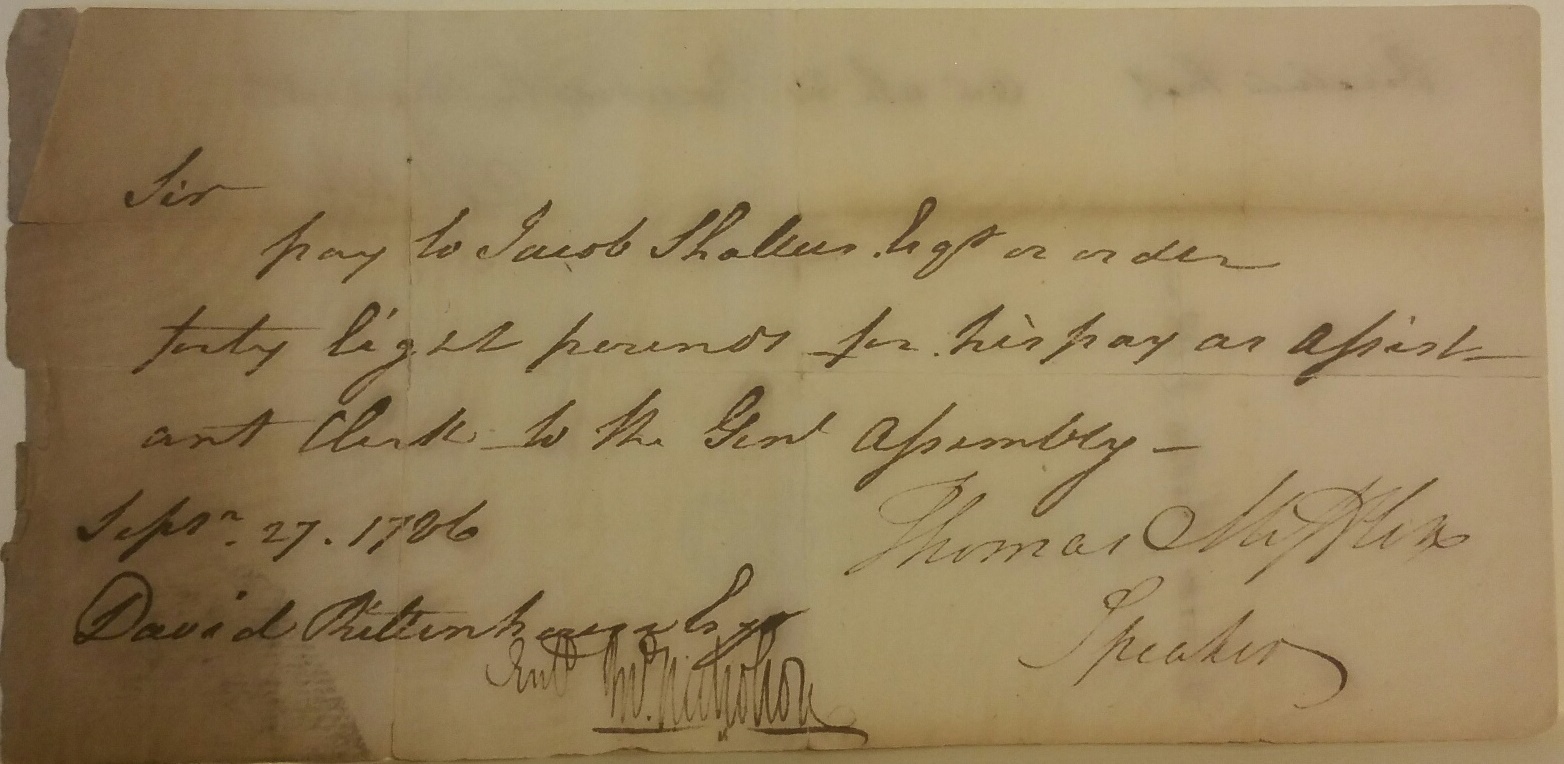 Sir
pay to Jacob Shallus Esqr or order
forty Eight pounds for his pay as assist-
ant Clerk to the Genl Assembly –
Septr. 27. 1786
Thomas Mifflin
David Rittenhouse Esqr
Speaker
Entd Jno. Nicholson